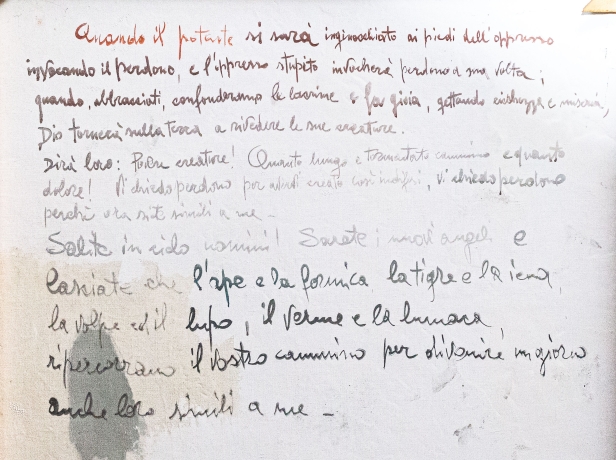 Quando il potente si sarà inginocchiato ai piedi dell'oppresso
invocando il perdono, e l'oppresso stupito invocherà perdono a sua volta;
quando, abbracciati, confonderanno le lacrime e la gioia, gettando e miseria,
Dio tornerà sulla terra a rivedere le sue creature.
Dirà loro: Povere creature! Quanto lungo e tormentato cammino e quanto
dolore! Vi chiedo perdono per avervi creato così indifesi, vi chiedo perdono
perché ora siete simili a me -
Salite in cielo uomini! Sarete i nuovi angeli e
lasciate che l'ape e la formica la tigre e la iena,
la volpe ed il lupo, il verme e la lumaca,
ripercorrano il vostro cammino per divenire un giorno
anche loro simili a me -